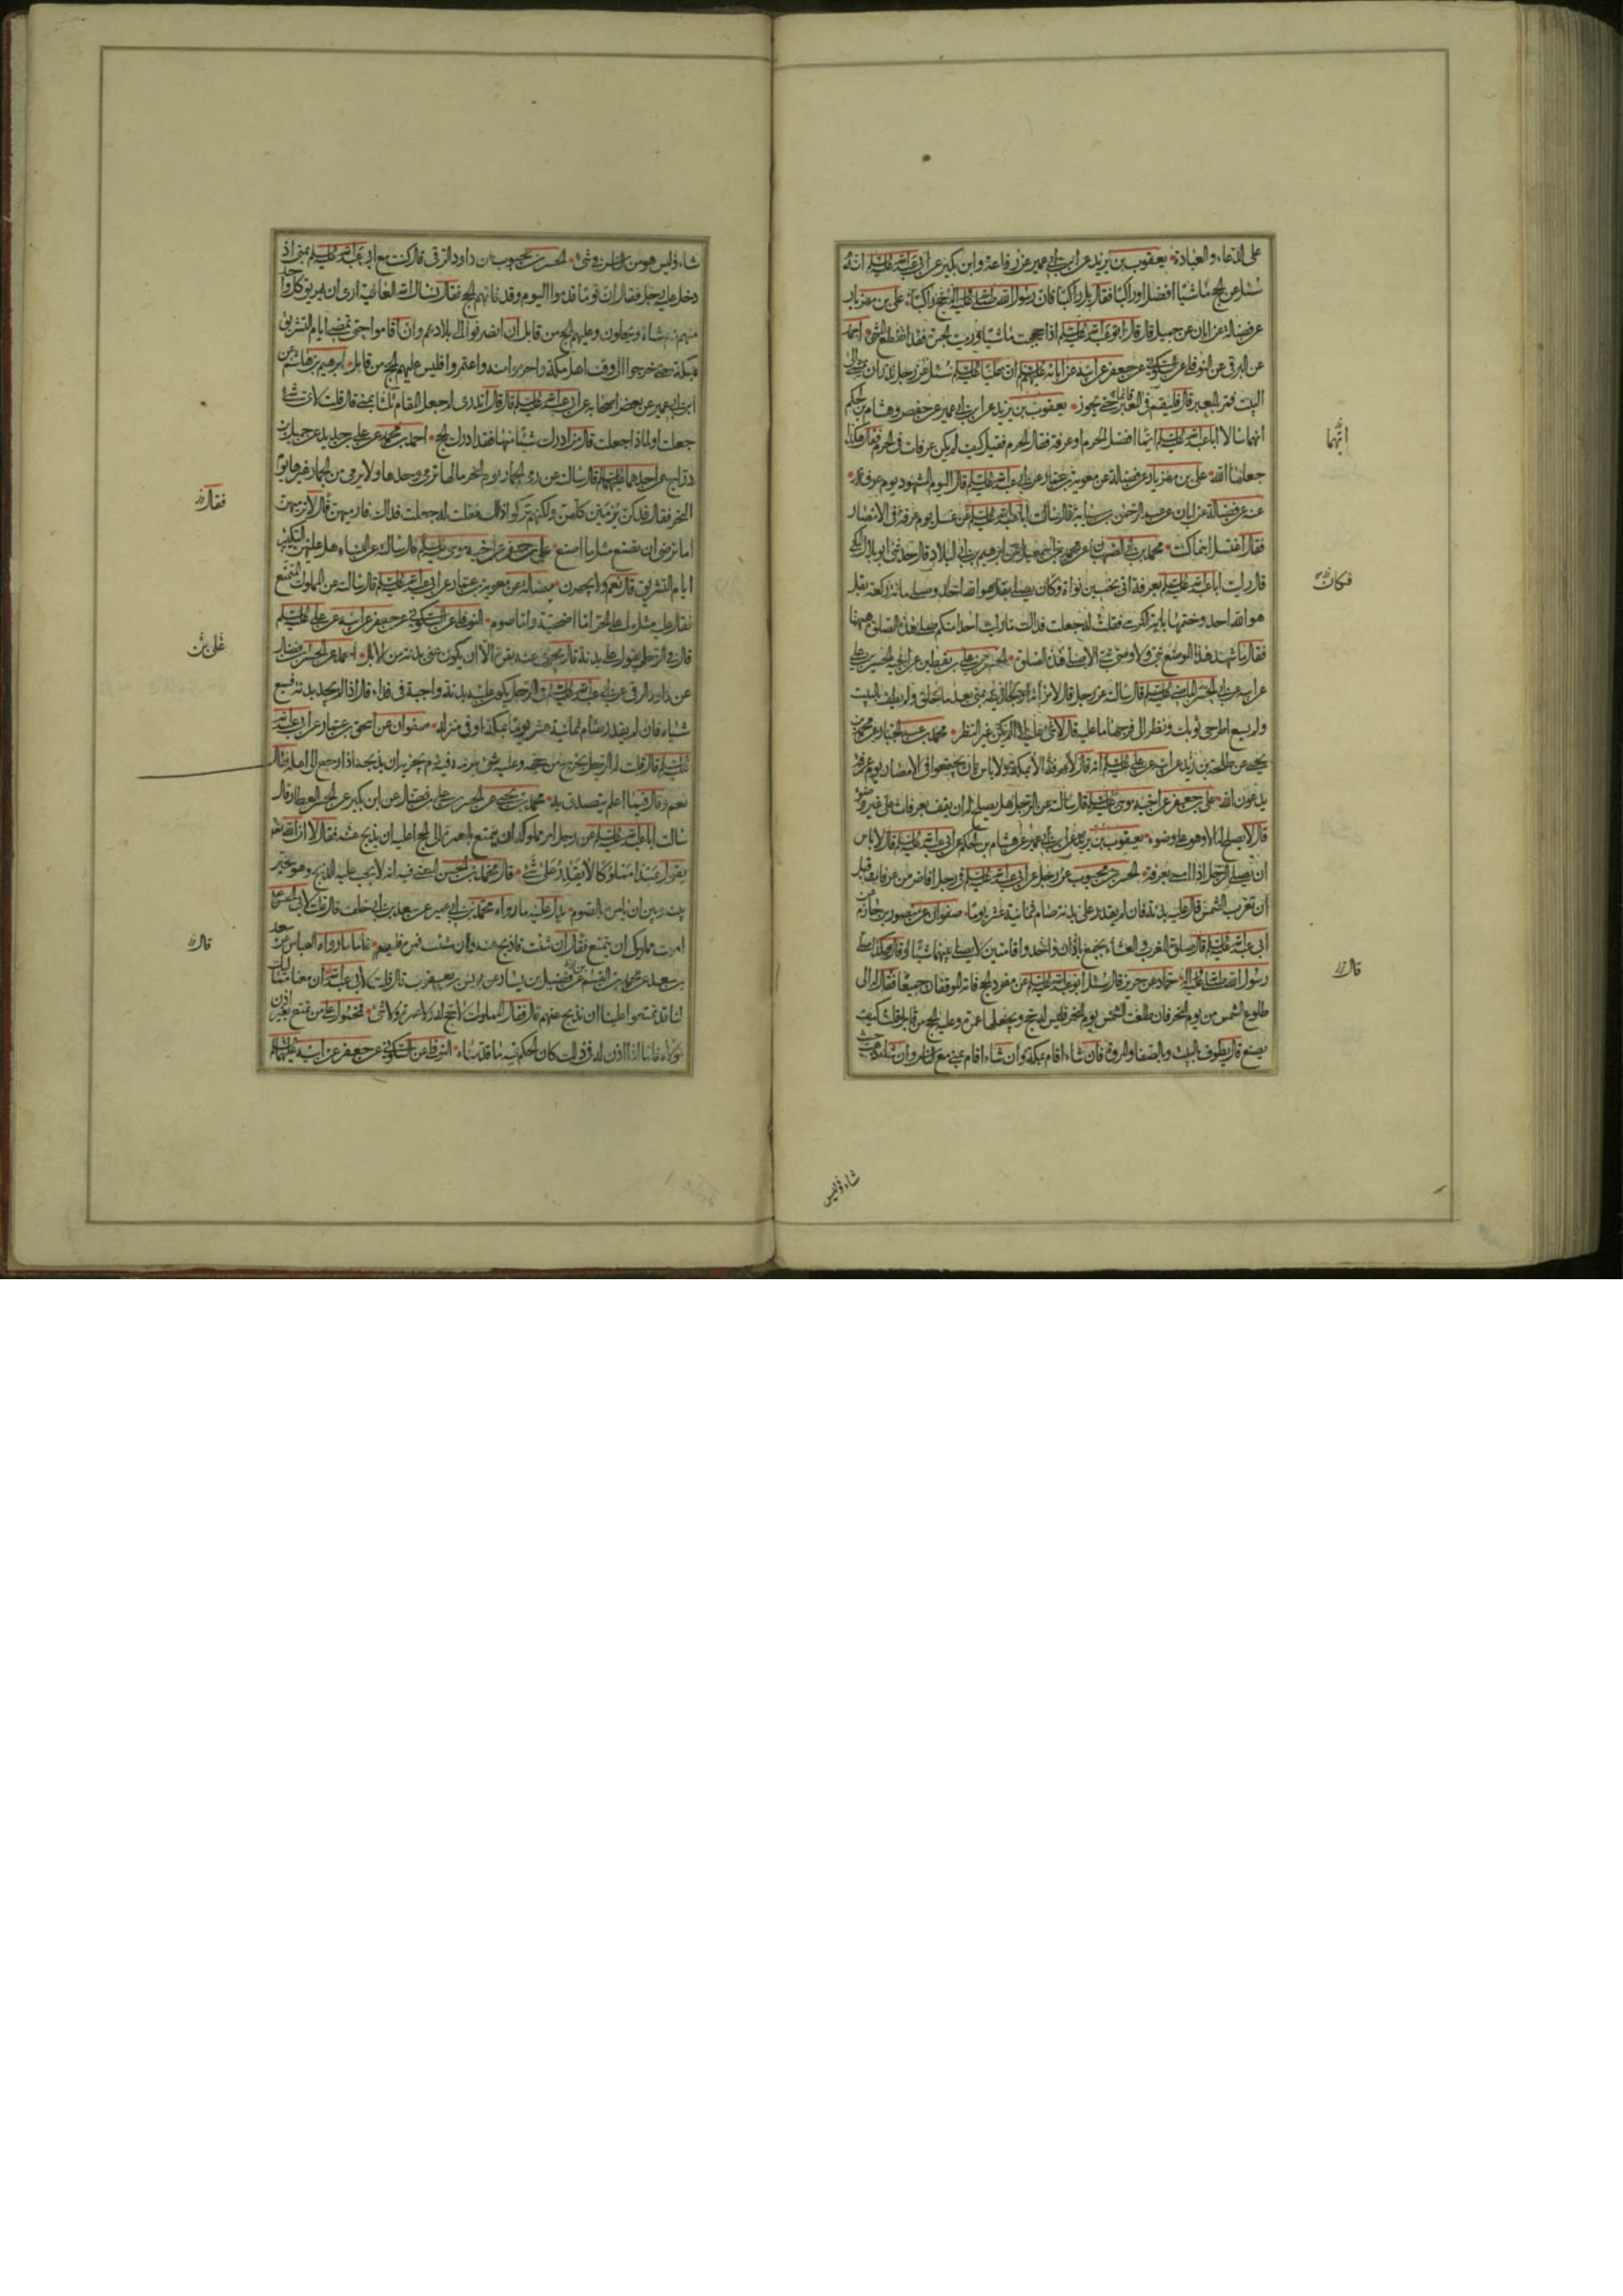 على الدعاء والعبادة يعقوب بن يزيد عن ابن ابي عمير عن رفاعة وابن بكير عن ابي عبد الله عليه السلم انه
سئل عن الحج ماشيا افضل او راكبا فقال بل راكبا فان رسول الله صلى الله عليه وآله حج راكبا علي بن مهزيار
عن فضالة عن ابان عن جميل قال قال ابو عبد الله عليه السلم اذا حججت ماشيا ورميت الجمرة فقد انقطع المشي احمد
عن البرقي عن النوفلي عن السكوني عن جعفر عن ابيه عن ابائه عليهم السلم ان عليا عليه السلم سئل عن رجل نذر ان يمشي الى
البيت فمر بالمعبر قال فليقم في المعبر قائما حتى يجوز يعقوب بن يزيد عن ابن ابي عمير عن حفص وهشام بن الحكم
انهما سالا ابا عبد الله عليه السلم ايما افضل الحرم او عرفة فقال الحرم فقيل كيف لم يكن عرفات في الحرم فقال هكذا
جعلها الله علي بن مهزيار عن فضالة عن معوية بن عمار عن ابي عبد الله عليه السلم قال اليوم المشهود يوم عرفة
عنه عن فضالة عن ابان عن عبد الرحمن بن سيابة قال سالت ابا عبد الله عليه السلم عن غسل يوم عرفة في الامصار
فقال اغتسل اينما كنت محمد بن ابي الصهبان عن محمد بن اسمعيل عن ابرهيم بن ابي البلاد قال حدثني ابو بلال المكي
قال رايت ابا عبد الله عليه السلم بعرفة اتي بخمسين نواة وكان يصلي بقل هو الله احد وصلى مائة ركعة بقل
هو الله احد وختمها باية الكرسي فقلت له جعلت فداك ما رايت احدا منكم صلى هذه الصلوة ههنا
فقال ما شهد هذا الموضع نبي ولا وصي نبي الا صلى هذه الصلوة الحسن بن علي بن يقطين عن اخيه الحسين بن علي
ولم يسع اطرحي ثوبك ونظر الى فرجها ما عليه قال لا شيء عليه اذا لم يكن غير النظر محمد بن عبد الجبار عن محمد بن
يحيى عن طلحة بن زيد عن ابيه عن علي عليه السلم انه قال لا عرفة الا بمكة ولا باس بان يجتمعوا في الامصار يوم عرفة
يدعون الله علي بن جعفر عن اخيه موسى عليه السلم قال سالته عن الرجل هل يصلح له ان يقف بعرفات على غير وضوء
قال لا يصلح له الا وهو على وضوء يعقوب بن يزيد عن ابن ابي عمير عن هشام بن الحكم عن ابي عبد الله عليه السلم قال لا باس
ان يصلي الرجل اذا امسى بعرفة الحسن بن محبوب عن رجل عن ابي عبد الله عليه السلم في رجل افاض من عرفات قبل
ان تغرب الشمس قال عليه بدنة فان لم يقدر على بدنة صام ثمانية عشر يوما صفوان عن منصور بن حازم عن
ابي عبد الله عليه السلم قال صلوة المغرب والعشاء بجمع باذان واحد واقامتين لا يصلي بينهما شيئا وقال هكذا صلى
رسول الله صلى الله عليه وآله حماد عن حريز قال سئل ابو عبد الله عليه السلم عن مفرد الحج فاته الموقفان جميعا فقال له الى
طلوع الشمس من يوم النحر فان طلعت الشمس يوم النحر فليس له حج ويجعلها عمرة وعليه الحج من قابل قلت كيف
يصنع قال يطوف بالبيت وبالصفا والمروة فان شاء اقام بمكة وان شاء اقام بمنى مع الناس وان شاء ذهب حيث
شاء وليس
ايهما
فكان
قال
شاء وليس هو من الناس في شيء الحسن بن محبوب عن داود الرقي قال كنت مع ابي عبد الله عليه السلم بمنى اذ
دخل عليه رجل فقال ان قوما قدموا اليوم وقد فاتهم الحج فقال نسال الله العافية ارى ان يهريق كل واحد
منهم دم شاة ويحلون وعليهم الحج من قابل ان انصرفوا الى بلادهم وان اقاموا حتى تمضي ايام التشريق
بمكة حتى خرجوا الى وقت اهل مكة واحرموا منه واعتمروا فليس عليهم الحج من قابل ابرهيم بن هاشم عن
ابن ابي عمير عن بعض اصحابه عن ابي عبد الله عليه السلم قال قال اتدري لم جعل المقام ثلثا بمنى قال قلت لاي شيء
جعلت او لماذا جعلت قال من ادرك شيئا منها فقد ادرك الحج احمد بن محمد عن علي بن حديد عن جميل بن
دراج عن احدهما عليهما السلم قال سالته عن رمي الجمار يوم النحر ما لها ترمى وحدها ولا يرمى من الجمار غيرها يوم
النحر فقال قد كن يرمين كلهن ولكنهم تركوا ذلك فقلت له جعلت فداك فارميهن قال لا ترميهن
اما ترضى ان تصنع مثل ما اصنع علي بن جعفر عن اخيه موسى عليه السلم قال سالته عن النساء هل عليهن التكبير
ايام التشريق قال نعم ولا يجهرن فضالة عن معوية بن عمار عن ابي عبد الله عليه السلم قال سالته عن المملوك المتمتع
فقال عليه مثل ما على الحر اما اضحية واما صوم النوفلي عن السكوني عن جعفر عن ابيه عن علي عليه السلم
قال في الرجل يقول علي بدنة قال يجزي عنه بقرة الا ان يكون عنى بدنة من الابل احمد عن الحسن بن فضال
عن داود الرقي عن ابي عبد الله عليه السلم في الرجل يكون عليه بدنة واجبة في فداء قال اذا لم يجد بدنة فسبع
شياه فان لم يقدر صام ثمانية عشر يوما بمكة او في منزله صفوان عن اسحق بن عمار عن ابي عبد الله
عليه السلم قال قلت له الرجل يخرج من حجه وعليه شيء يلزمه فيه دم يجزيه ان يذبحه اذا رجع الى اهله فقال
نعم وقال فيما اعلم يتصدق به محمد بن يحيى عن الحسن بن علي بن فضال عن ابن بكير عن الحسن العطار قال
سالت ابا عبد الله عليه السلم عن رجل امر مملوكه ان يتمتع بالعمرة الى الحج اعليه ان يذبح عنه فقال لا ان الله تعالى
يقول عبدا مملوكا لا يقدر على شيء قال محمد بن الحسن المعنى فيه انه لا يجب عليه الذبح وهو مخير
بينه وبين ان يامره بالصوم يدل عليه ما رواه محمد بن ابي عمير عن سعد بن ابي خلف قال قلت لابي الحسن عليه
امرت مملوكي ان يتمتع فقال ان شئت فاذبح عنه وان شئت فمره فليصم فاما ما رواه العباس عن سعد
بن سعد عن محمد بن القسم عن فضيل بن يسار عن يونس بن يعقوب قال قلت لابي عبد الله ان معنا مماليك
لنا قد تمتعوا علينا ان نذبح عنهم قال فقال المملوك لا حج له ولا عمرة ولا شيء فمحمول على من تمتع بغير اذن
مولاه فاما اذا اذن له في ذلك كان الحكم فيه ما قدمناه النوفلي عن السكوني عن جعفر عن ابيه عليهما السلم
فقال
علي بن
قال